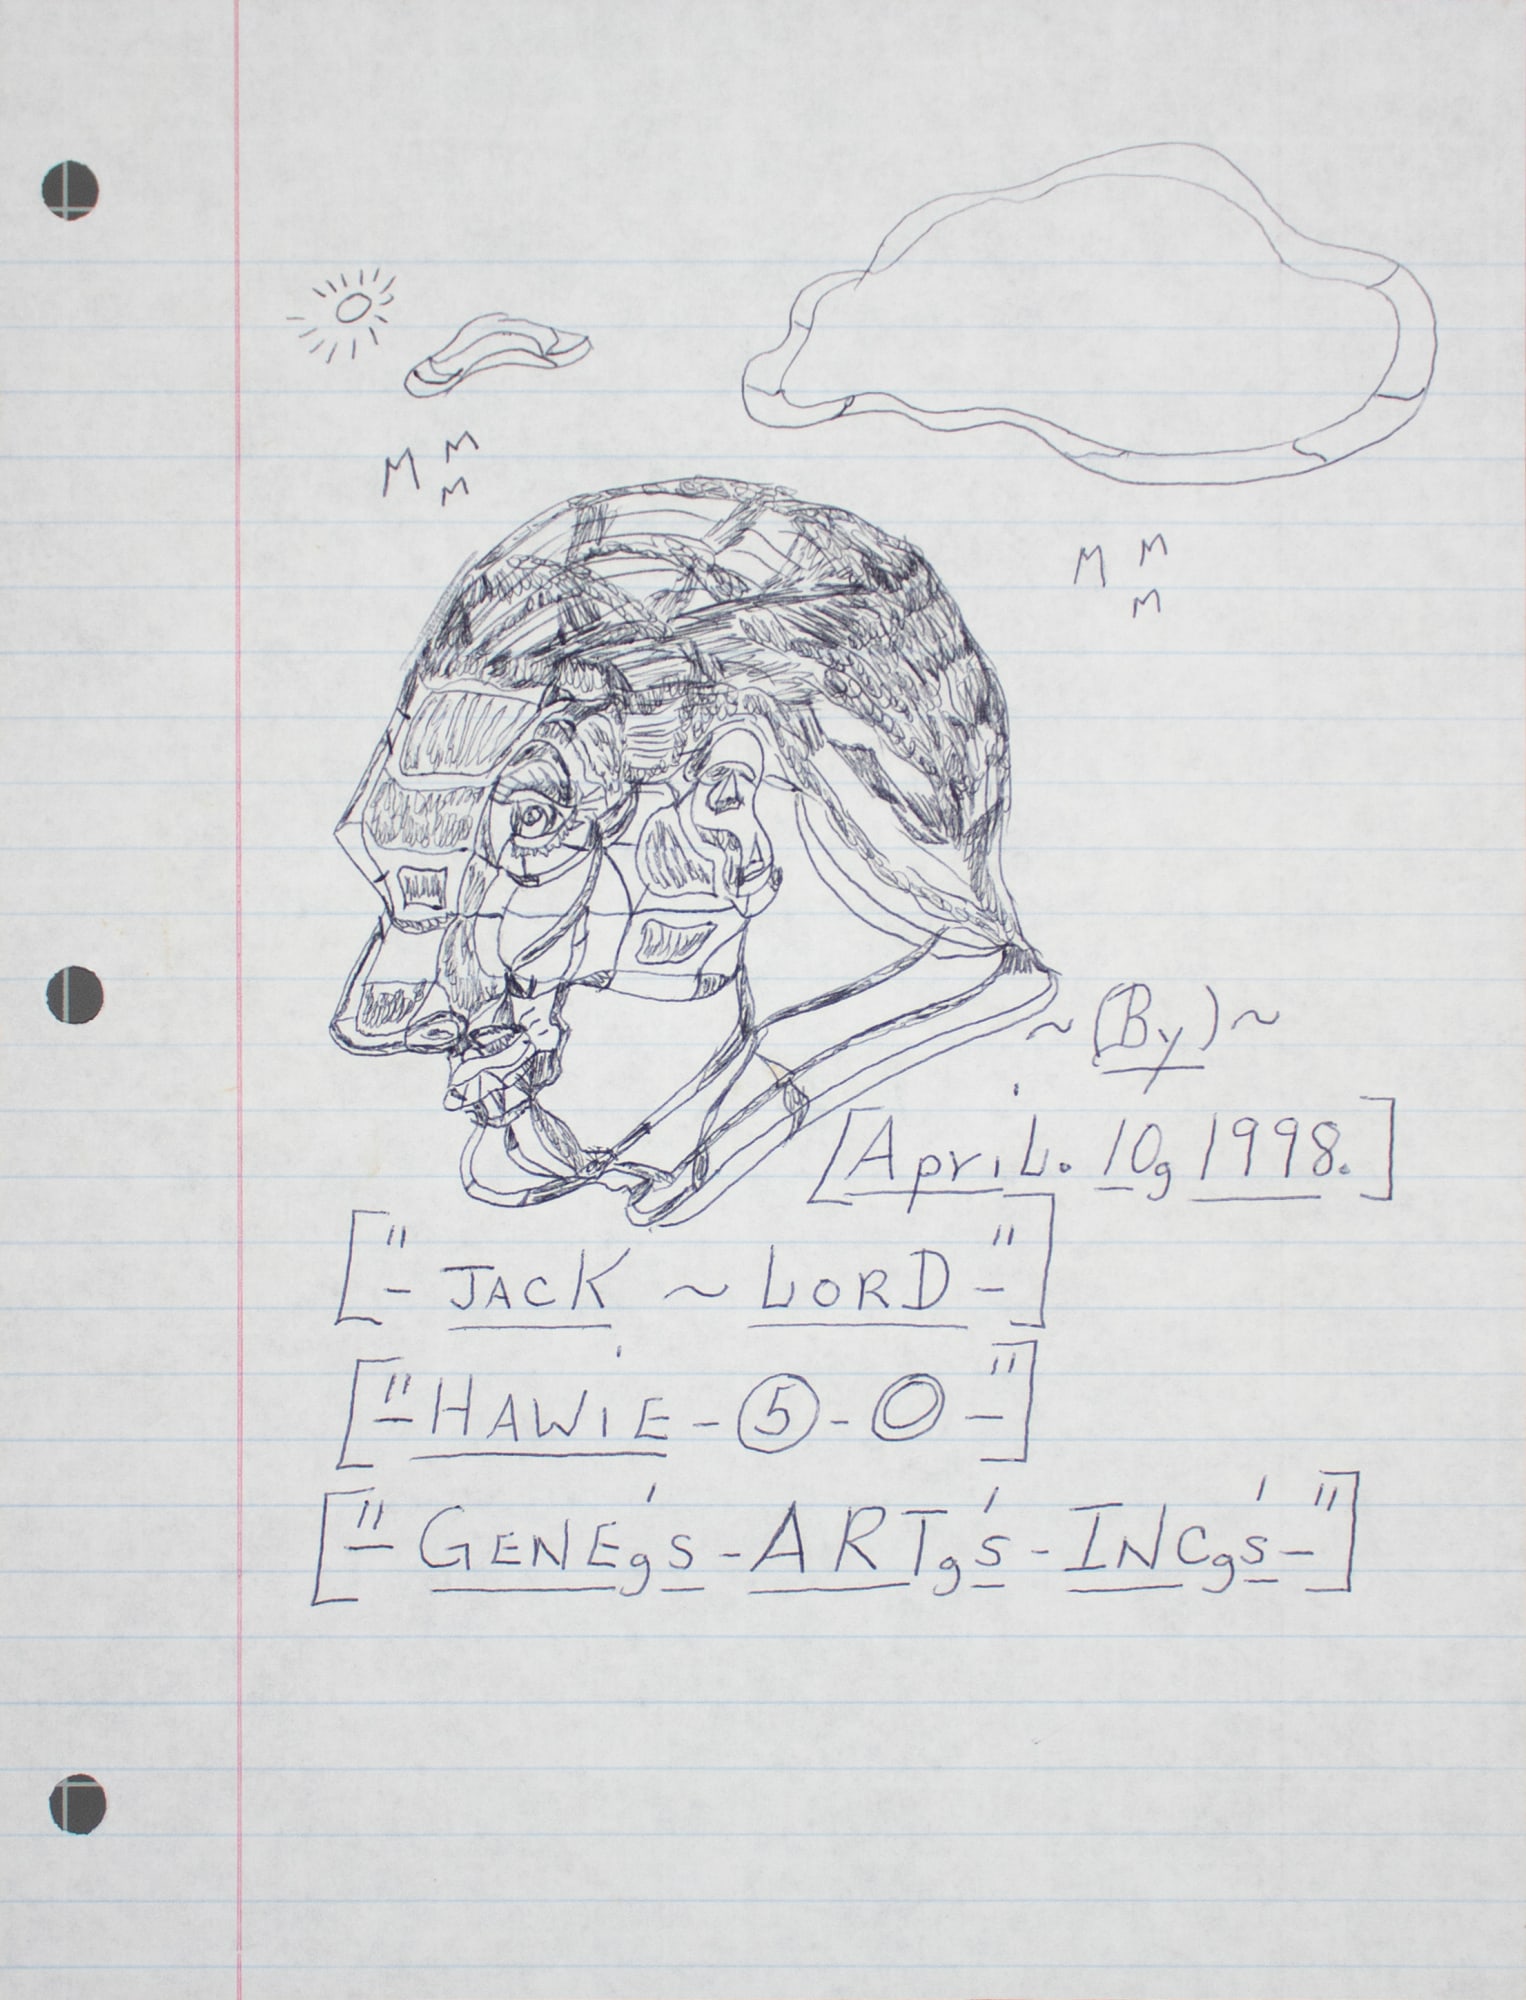 M M
M
M M
M
~ (By) ~
[April. 10, 1998.]
["- JACK ~ LORD -"]
["- HAWiE - 5 - O -"]
["- GENE,'s - ART,'s - INC,'s -"]